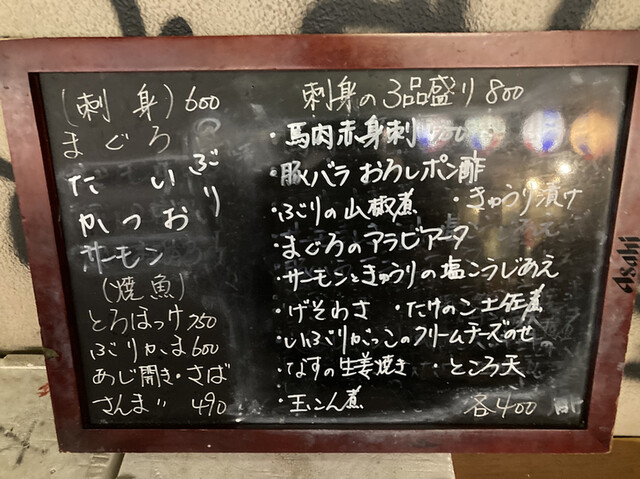 (刺身) 600
まぐろ
たい ぶり
かつお
サーモン
(焼魚)
とろほっけ 750
ぶりかま 600
あじ開き・さば
さんま 〃 490
刺身の3品盛り 800
・馬肉赤身刺
・豚バラおろしポン酢
・ぶりの山椒煮 ・きゅうり漬け
・まぐろのアラビアータ
・サーモンときゅうりの塩こうじあえ
・げそわさ ・たけのこ土佐煮
・いぶりがっこのクリームチーズのせ
・なすの生姜焼き ・ところ天
・玉こん煮 各400
Asahi